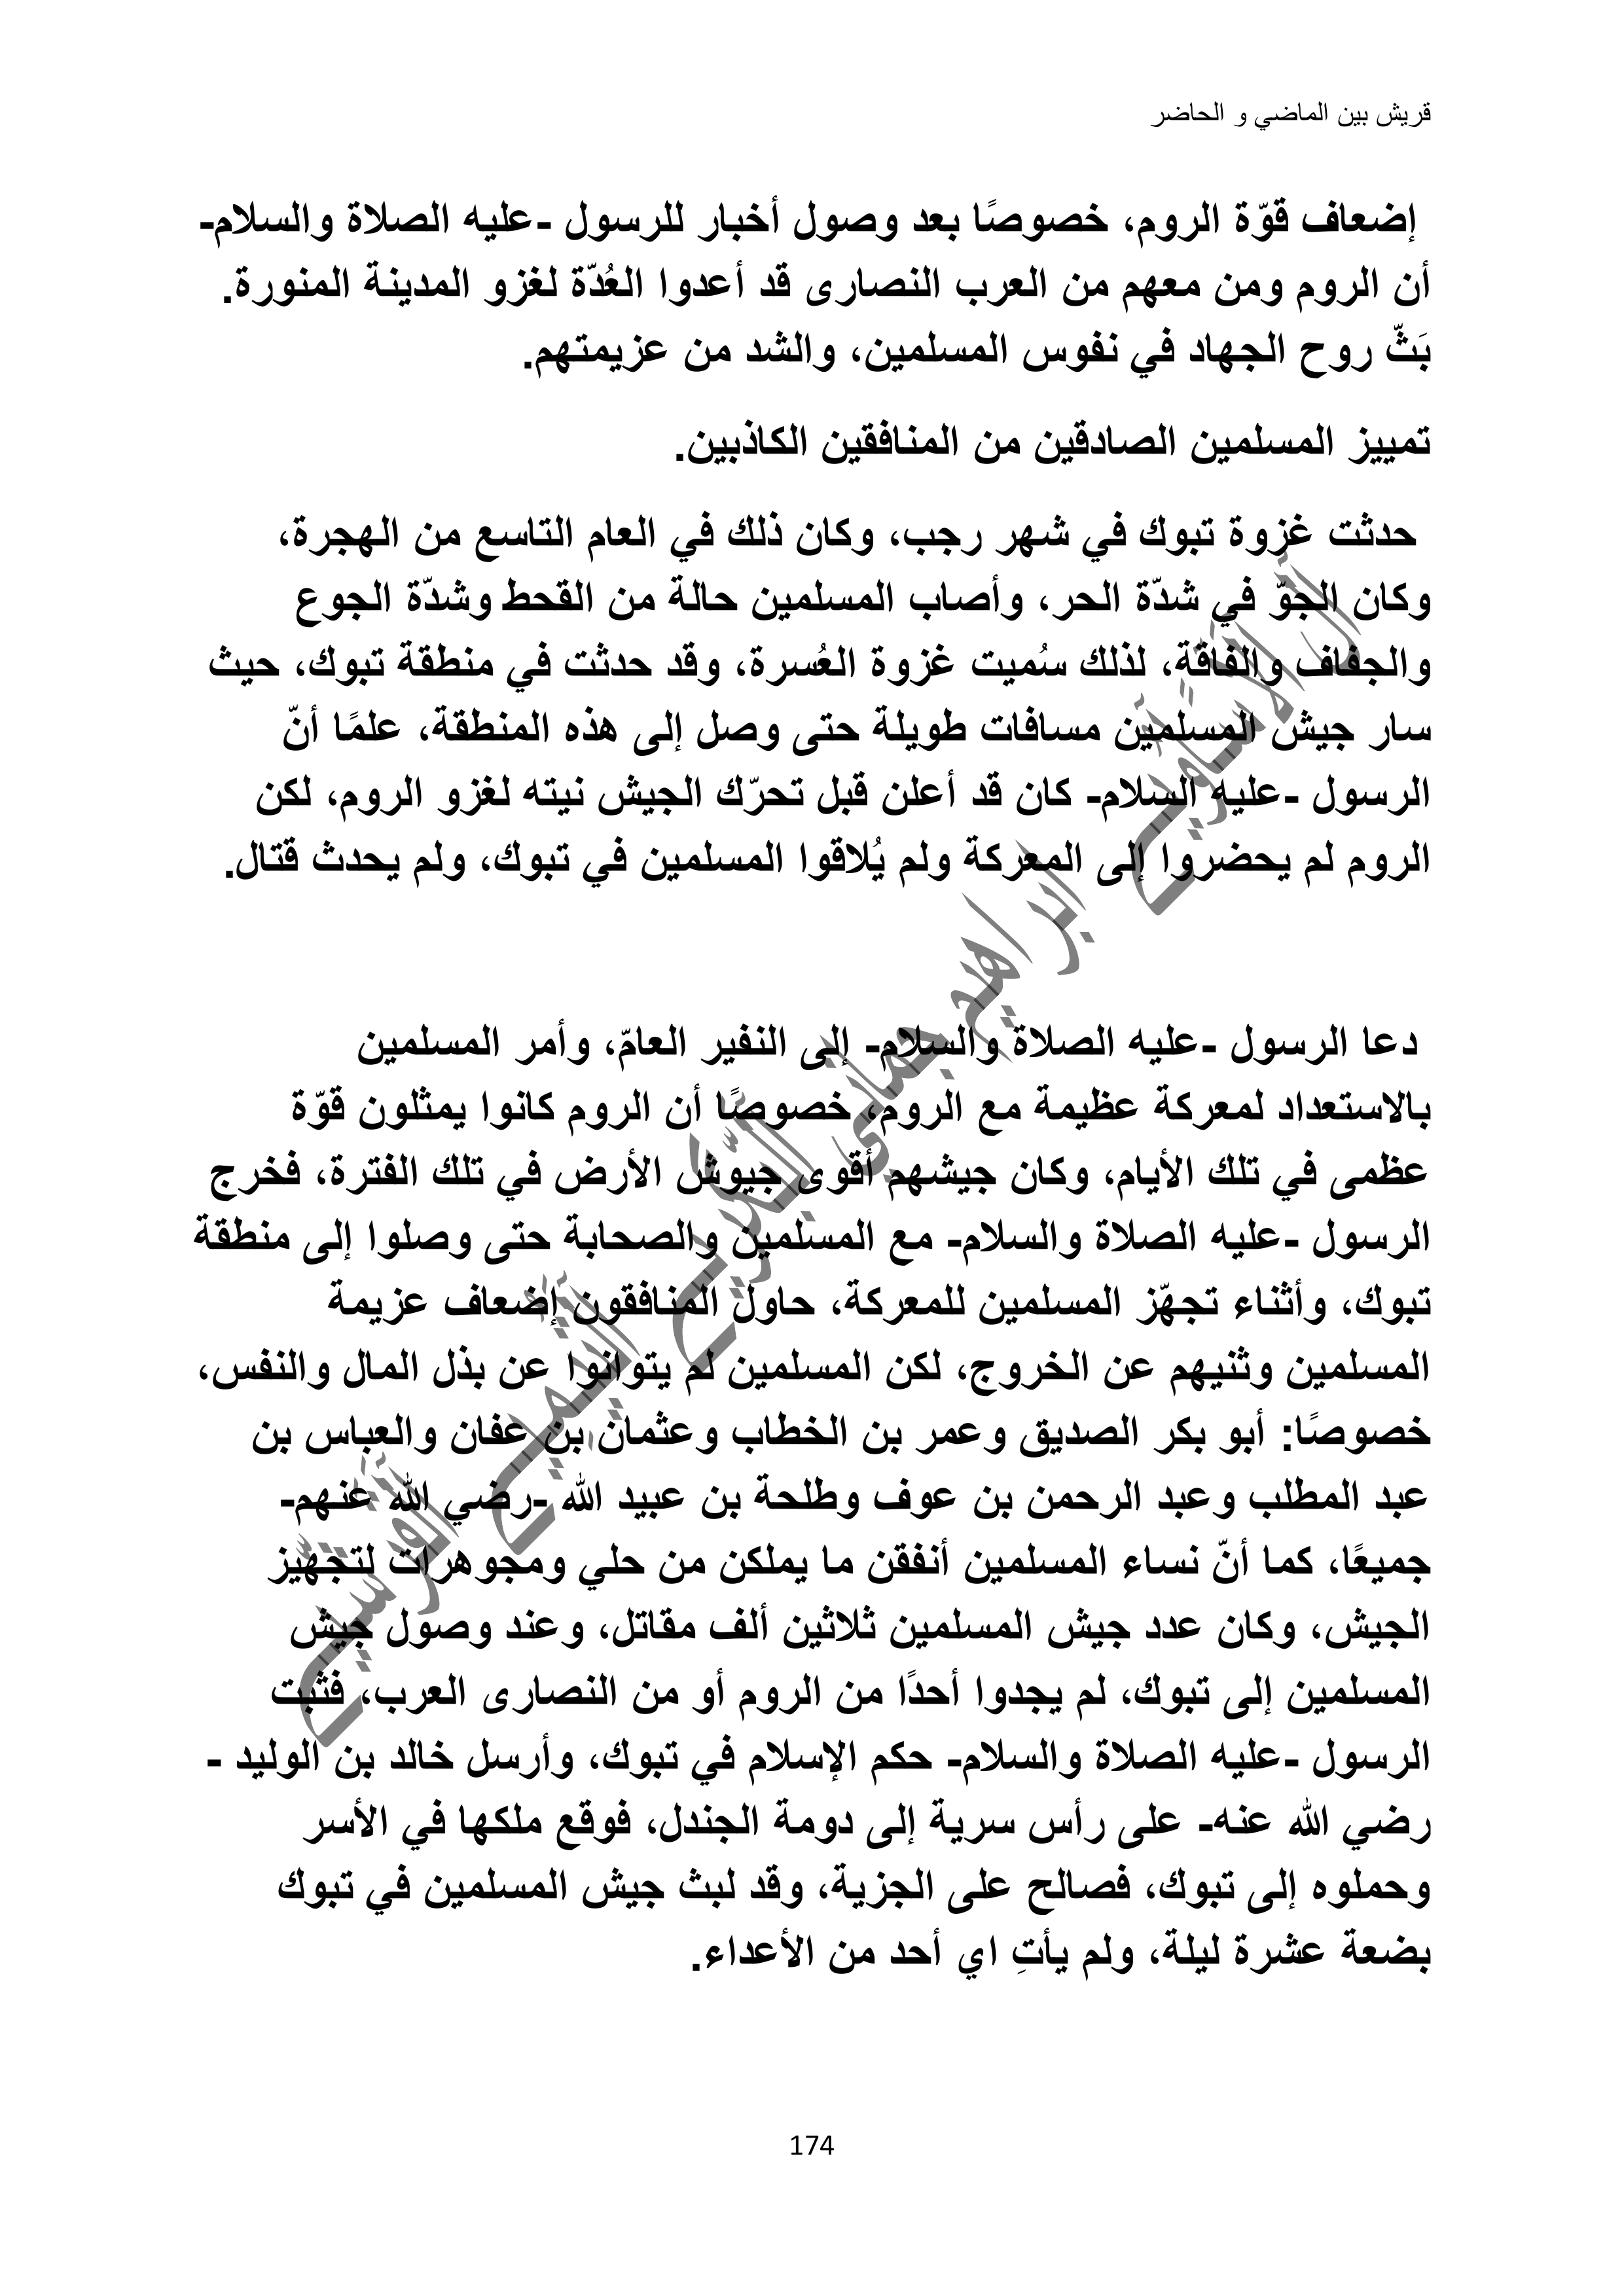 قريش بين الماضي و الحاضر
إضعاف قوّة الروم، خصوصًا بعد وصول أخبار للرسول -عليه الصلاة والسلام-
أن الروم ومن معهم من العرب النصارى قد أعدوا العُدّة لغزو المدينة المنورة.
بَثّ روح الجهاد في نفوس المسلمين، والشد من عزيمتهم.
تمييز المسلمين الصادقين من المنافقين الكاذبين.
حدثت غزوة تبوك في شهر رجب، وكان ذلك في العام التاسع من الهجرة،
وكان الجوّ في شدّة الحر، وأصاب المسلمين حالة من القحط وشدّة الجوع
والجفاف والفاقة، لذلك سُميت غزوة العُسرة، وقد حدثت في منطقة تبوك، حيث
سار جيش المسلمين مسافات طويلة حتى وصل إلى هذه المنطقة، علمًا أنّ
الرسول -عليه السلام- كان قد أعلن قبل تحرّك الجيش نيته لغزو الروم، لكن
الروم لم يحضروا إلى المعركة ولم يُلاقوا المسلمين في تبوك، ولم يحدث قتال.
دعا الرسول -عليه الصلاة والسلام- إلى النفير العامّ، وأمر المسلمين
بالاستعداد لمعركة عظيمة مع الروم، خصوصًا أن الروم كانوا يمثلون قوّة
عظمى في تلك الأيام، وكان جيشهم أقوى جيوش الأرض في تلك الفترة، فخرج
الرسول -عليه الصلاة والسلام- مع المسلمين والصحابة حتى وصلوا إلى منطقة
تبوك، وأثناء تجهّز المسلمين للمعركة، حاول المنافقون إضعاف عزيمة
المسلمين وثنيهم عن الخروج، لكن المسلمين لم يتوانوا عن بذل المال والنفس،
خصوصًا: أبو بكر الصديق وعمر بن الخطاب وعثمان بن عفان والعباس بن
عبد المطلب وعبد الرحمن بن عوف وطلحة بن عبيد الله -رضي الله عنهم-
جميعًا، كما أنّ نساء المسلمين أنفقن ما يملكن من حلي ومجوهرات لتجهّيز
الجيش، وكان عدد جيش المسلمين ثلاثين ألف مقاتل، وعند وصول جيش
المسلمين إلى تبوك، لم يجدوا أحدًا من الروم أو من النصارى العرب، فثبت
الرسول -عليه الصلاة والسلام- حكم الإسلام في تبوك، وأرسل خالد بن الوليد -
رضي الله عنه- على رأس سرية إلى دومة الجندل، فوقع ملكها في الأسر
وحملوه إلى تبوك، فصالح على الجزية، وقد لبث جيش المسلمين في تبوك
بضعة عشرة ليلة، ولم يأتِ اي أحد من الأعداء.
174